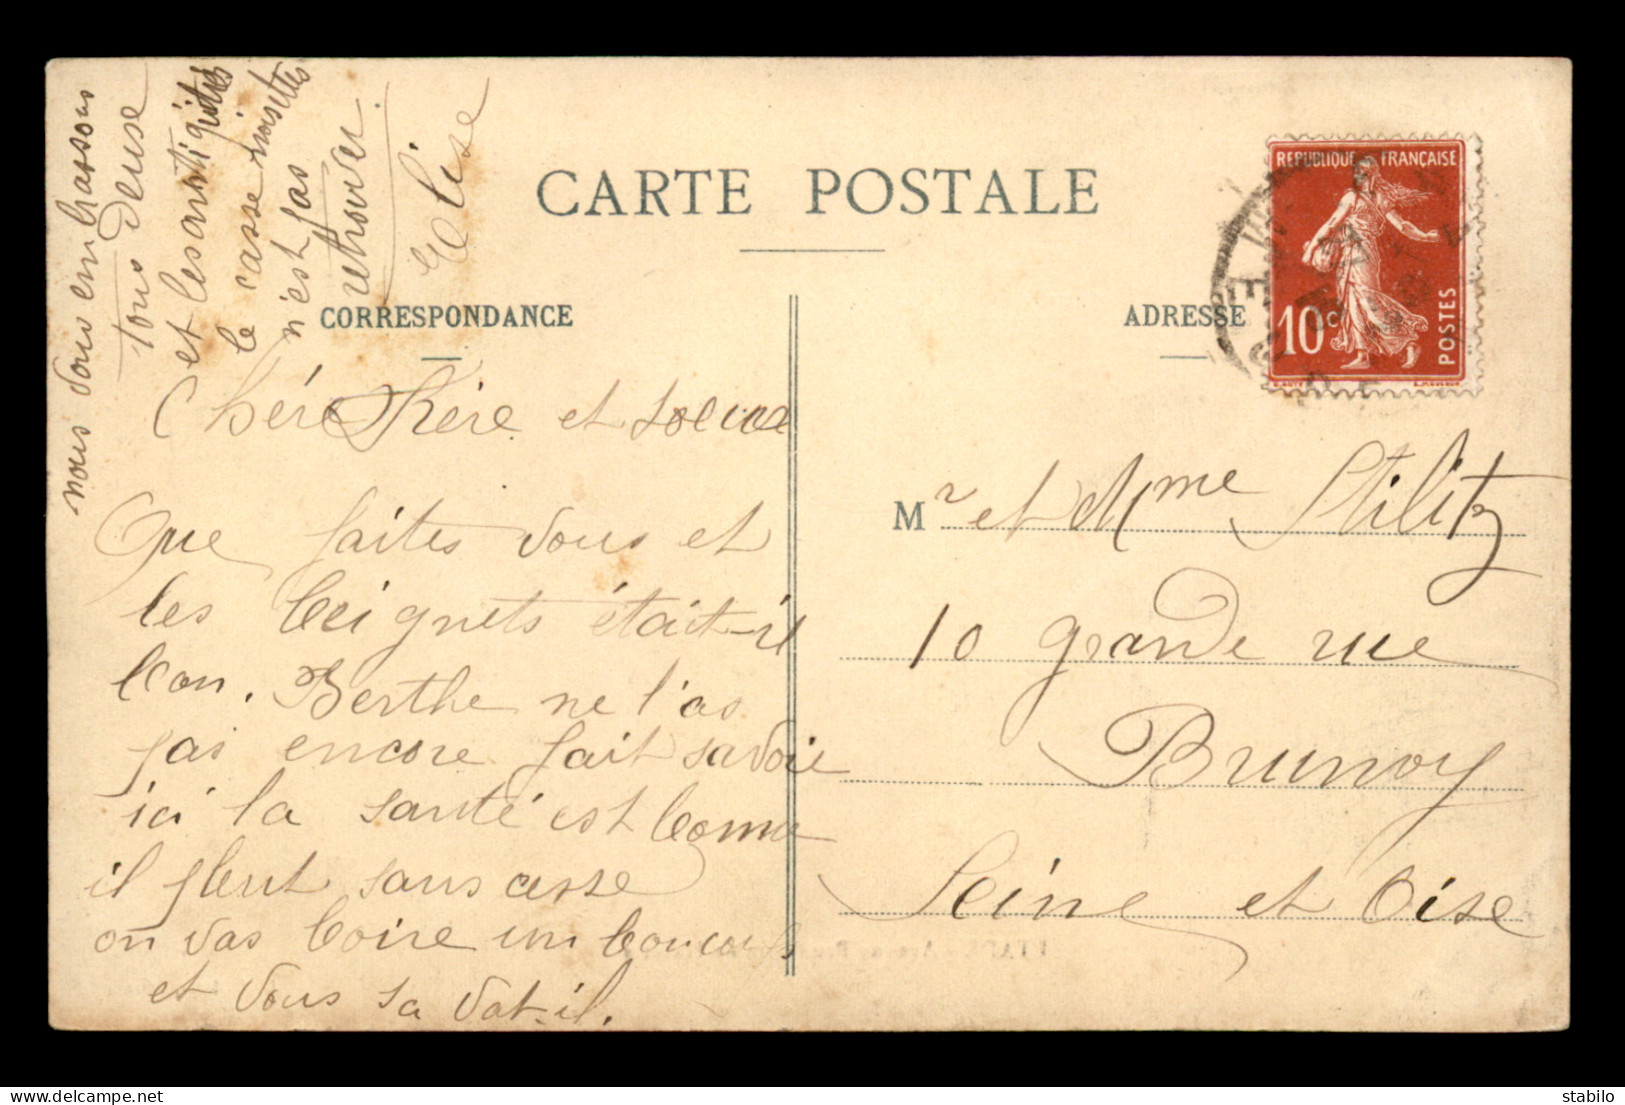 CARTE POSTALE
CORRESPONDANCE
ADRESSE
REPUBLIQUE FRANÇAISE
10c
POSTES
Chére Frère et soeur
Que faites vous et
les beignets était-il
bon. Berthe ne l'as
pas encore fait savoir
ici la santé est bonne
il pleut sans cesse
on vas boire un bon coups
et vous sa vat-il.
nous vous embrassons
tous deuse
et les
le casse noisettes
n'est pas
retrouver
Elise
Mr et Mme Stilitz
10 grande rue
Brunoy
Seine et Oise
delcampe.net
STABILO